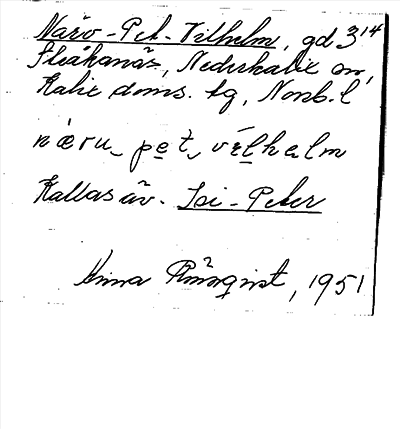 Närv-Pet-Vilhelm, gd 3¹⁴
Nederkalix sn,
Kalix doms. tg, Norrb. l
næru pet vilhelm
Kallas äv. Isi-Peter
Anna Rönnqvist, 1951